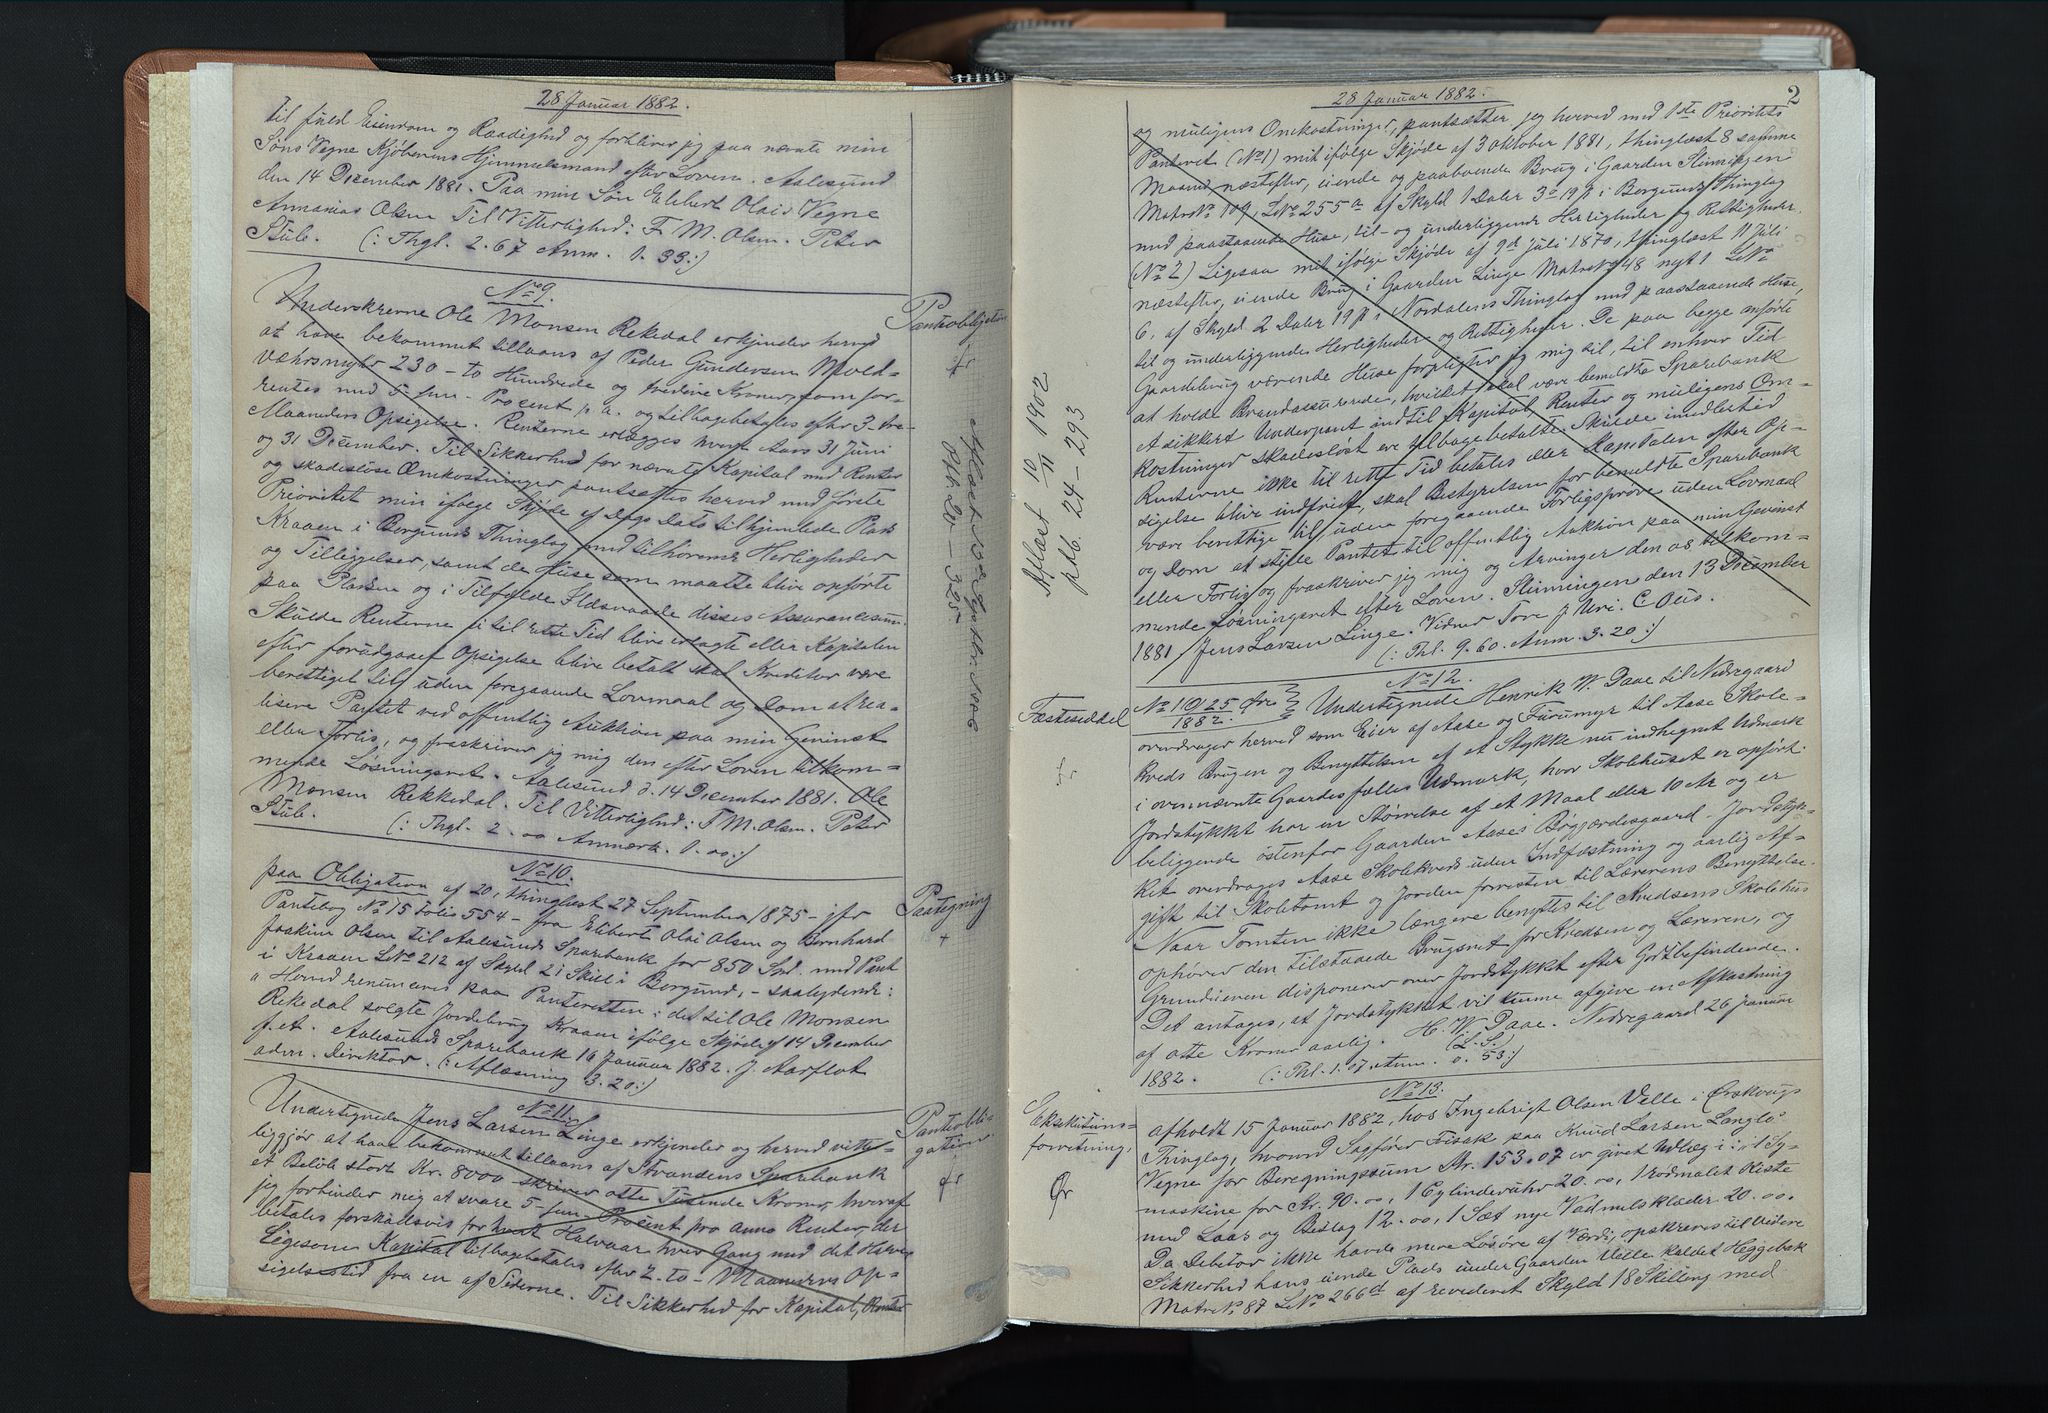 28 Januar 1882.
til fuld Eiendom og Raadighed og forbliver jeg paa nævnte min
Søns Vegne Kjøberens Hjemmelsmand efter Loven. Aalesund
den 14 December 1881. Paa min Søn Elibert Olais Vegne
Annanias Olsen Til Vitterlighed: F. M. Olsen. Peter
Stub. (: Thgl. 2.67 Anm. 1.33:)
No 9.
Pantobligation
Underskrevne Ole Monsen Rekedal erkjender herved
at have bekommet tillaans af Peder Gundersen Mold-
værsmyhr 230 - to Hundrede og tredive Kroner, som for-
rentes med 5 fem - Procent p. a. og tilbagebetales efter 3 - tre
Maaneders Opsigelse. Renterne erlægges hvert Aars 31 Juni
og 31 December. Til Sikkerhed for nævnte Kapital med Renter
og skadesløse Omkostninger pantsættes herved med første
Prioritet min ifølge Skjøde af Dags Dato tilhjemlede Plads
Kraaen i Borgunds Thinglag med tilhørende Herligheder
og Tilliggelser, samt de Huse som maatte blive opførte
paa Pladsen og i Tilfælde Ildsvaade disses Assurancesum.
Skulde Renterne ei til rette Tid blive erlagte eller Kapitalen
efter forudgaaen Opsigelse blive betalt skal Kreditor være
berettiget til uden foregaaende Lovmaal og Dom at rea-
lisere Pantet ved offentlig Auktion paa min Gevinst
eller Forlis, og fraskriver jeg mig den efter Loven tilkom-
mende Løsningsret. Aalesund d. 14 December 1881. Ole
Monsen Rekkedal. Til Vitterlighed: F M. Olsen. Peter
Stub. (: Thgl. 2.00 Anmærk. 1.00:)
Aflæst 3de Septbr. 1886
Pbb 20 - 325.
No 10.
Paategning
paa Obligation af 20, thinglæst 27 September 1875 - jfr
Pantebog No 15 Folio 554 - fra Elibert Olai Olsen og Bernhard
Joakim Olsen til Aalesunds Sparebank for 850 Spd. med Pant
i Kraaen LNo 212 af Skyld 21 Skill i Borgund, - saalydende:
"Herved renunceres paa Panteretten i det til Ole Monsen
Rekedal solgte Jordebrug Kraaen ifølge Skjøde af 14 December
f. A. Aalesunds Sparebank 16 Januar 1882. J. Aarflot
adm. Direktør. (: Aflæsning 3.20:)
No 11.
Pantobli-
gation
Undertegnede Jens Larsen Linge erkjender og herved vitter-
liggjør at have bekommet tillaans af Strandens Sparebank
et Beløb stort Kr. 8000 skriver otte Tusinde Kroner, hvoraf
jeg forbinder mig at svare 5 - fem - Procent pro anno Renter, der
betales forskudsvis for hvert Halvaar hver Gang med det Halve
Ligesom Kapital tilbagebetales efter 2 - to - Maaneders Op-
sigelsestid fra en af Siderne. Til Sikkerhed for Kapital, Renter
28 Januar 1882.
2
og muligens Omkostninger, pantsætter jeg herved med 1ste Prioritets
Panteret (No 1) mit ifølge Skjøde af 3 oktober 1881, thinglæst 8 samme
Maaned næstefter, eiende og paaboende Brug i Gaarden Slinningen
Matr No 109, LNo 255a af Skyld 1 Daler 3 o 19 β i Borgunds Thinglag
med paastaaende Huse, til- og underliggende Herligheder og Rettigheder.
(No 2) Ligesaa mit ifølge Skjøde af 9de juli 1870, thinglæst 11 Juli
næstefter, eiende Brug i Gaarden Linge Matr No 48 nyt 1 LNo
6, af Skyld 2 Daler 19 β i Nordalens Thinglag med paastaaende Huse,
til og underliggende Herligheder og Rettigheder. De paa begge anførte
Gaardebrug værende Huse forpligter jeg mig til, til enhver Tid
at holde Brandassurerede, hvilket skal være bemeldte Sparebank
Asikkert Underpant indtil Kapital Renter og muligens Om-
kostninger skadesløst ere tilbagebetalte. Skulde imidlertid
Renterne ikke til rette Tid betales eller Kapitalen efter Op-
sigelse blive indfriet, skal Bestyrelsen for bemeldte Sparebank
være berettige til, uden foregaaende Forligsprøve uden Lovmaal
og Dom at stille Pantet til offentlig Auktion paa min Gevinst
eller Forlis og fraskriver jeg mig og Arvinger den os tilkom-
mende Løsningsret efter Loven. Slinningen den 13 December
1881 Jens Larsen Linge. Vidner Tore J. Uri. C. Ous.
(: Thl. 9.60. Anm. 3.20:)
Aflæst 10/11 1902
pbb. 24 - 293
No 12.
Fæsteseddel
No 19/25 Øre
1882.
Undertegnede Henrik W. Daae til Nedregaard
overdrager herved som Eier af Aase og Furumyr til Aase Skole-
kreds Brugen og Benyttelsen af et Stykke nu indhegnet Udmark
i ovennævnte Gaardes fælles Udmark, hvor Skolehuset er opført.
Jordstykket har en Størrelse af et Maal eller 10 Ar og er
beliggende østenfor Gaarden Aases Bøgjærdesgaard. Jordstyk-
ket overdrages Aase Skolekreds uden Indfæstning og aarlig Af-
gift til Skoletomt og Jorden forresten til Lærerens Benyttelse.
Naar Tomten ikke længere benyttes til Kredsens Skolehus
ophører den tilstaaede Brugsret for Kredsen og Læreren, og
Grundeieren disponerer over Jordstykket efter Godtbefindende.
Det antages, at Jordstykket vil kunne afgive en Afkastning
af otte Kroner aarlig. H. W. Daae. Nedregaard 26 Januar
1882. (L.S.)
(: Thl. 1.07 Anm. 0.53:)
No 13.
Eksekutions-
forretning,
afholdt 15 Januar 1882, hos Ingebrigt Olsen Velle i Ørskougs
Thinglag, hvorved Sagfører Fisak paa Knud Larsen Langlo
Vegne for Beregningssum Kr. 153.07 er givet Udlæg i: "1 Sy-
maskine for Kr. 90.00, 1 Cylinderuhr 20.00, 1 rødmalet Kiste
med Laas og Beslag 12.00, 1 Sæt nye Vadmelsklæder 20.00.
Da Debitor ikke havde mere Løsøre af Værdi, opskreves til videre
Sikkerhed hans eiende Plads under Gaarden Velle kaldet Heggebak
Matr No 87 LNo 266d af revideret Skyld 18 Skilling med